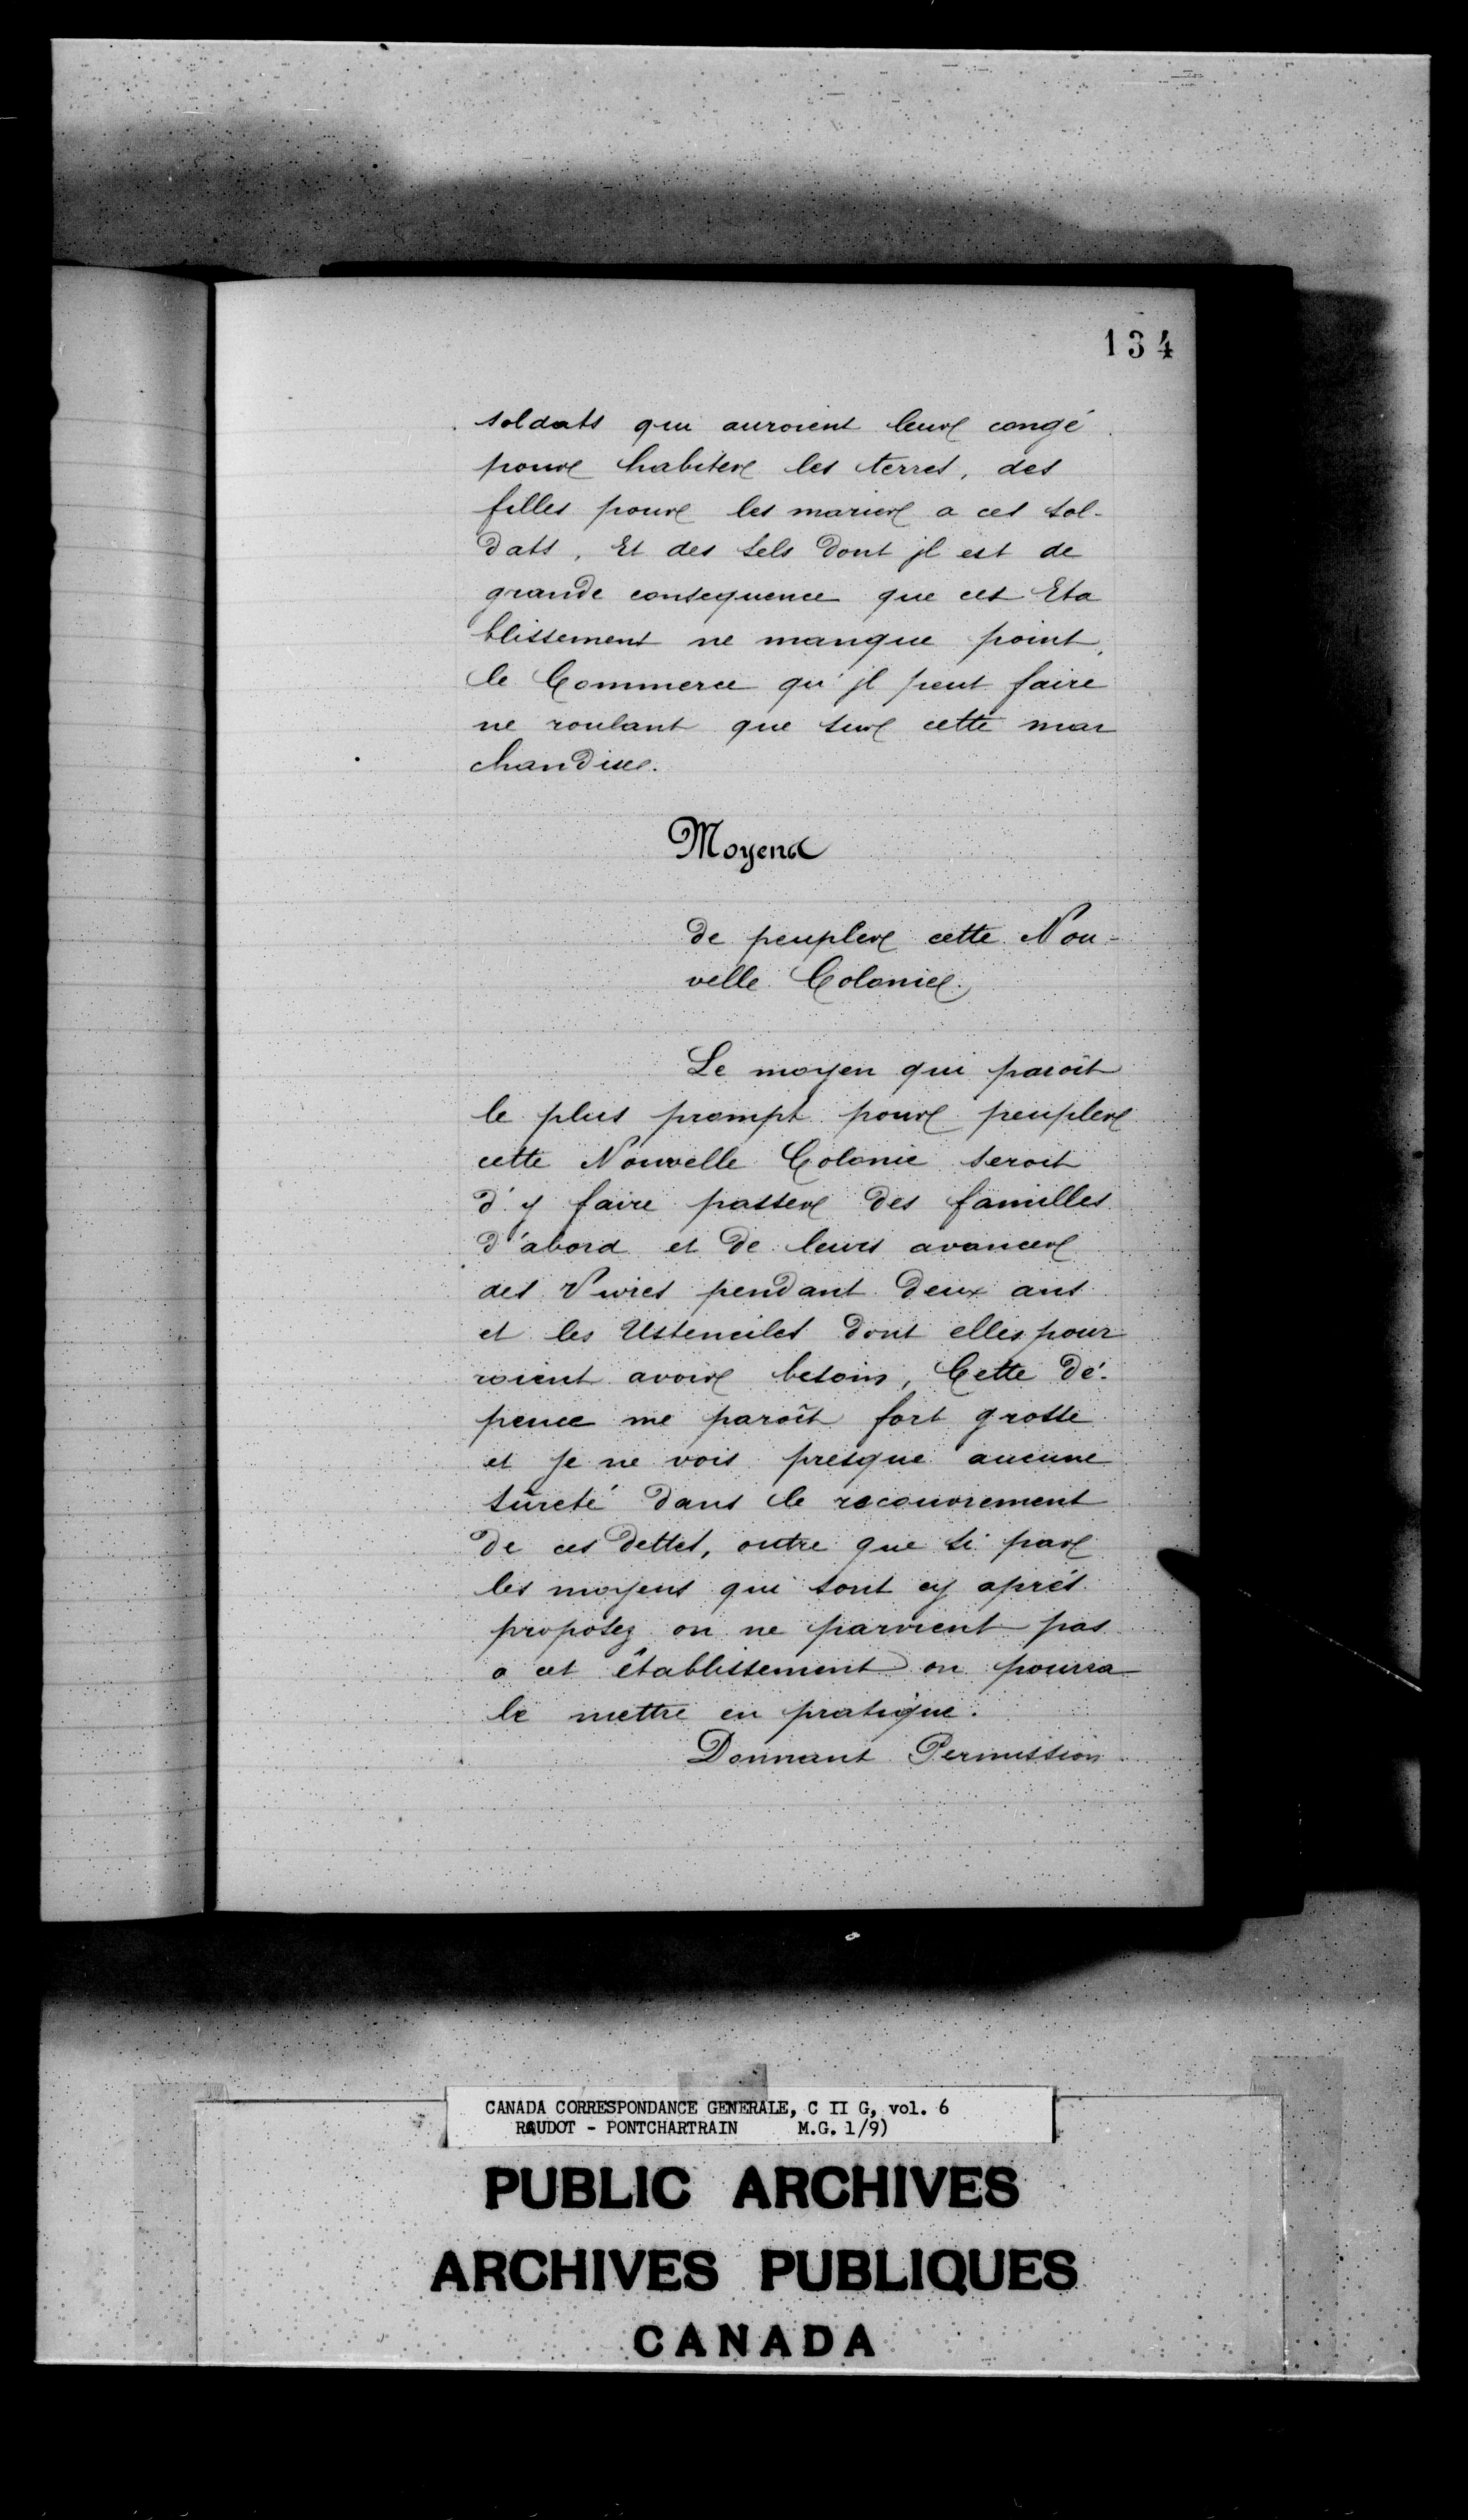 134
soldats qui auroient leur congé
pour habiter les terres, des
filles pour les marier a ces sol-
dats, Et des sels dont jl est de
grande consequence que cet Eta
blissement ne manque point,
le Commerce qu'jl peut faire
ne roulant que sur cette mar
chandise.
Moyens
de peupler cette Nou-
velle Colonie.
Le moyen qui paroît
le plus prompt pour peupler
cette Nouvelle Colonie seroit
d'y faire passer des familles
d'abord et de leurs avancer
des Vivres pendant deux ans
et les Ustenciles dont elles pour
roient avoir besoin, Cette dé-
pence me paroît fort grosse
et je ne vois presque aucune
sûreté dans le recouvrement
de ces dettes, outre que si par
les moyens qui sont cy aprés
proposez on ne parvient pas
a cet établissement on pourra
le mettre en pratique.
Donnant Permission
CANADA CORRESPONDANCE GENERALE, C II G, vol. 6
RAUDOT - PONTCHARTRAIN M.G. 1/9)
PUBLIC ARCHIVES
ARCHIVES PUBLIQUES
CANADA